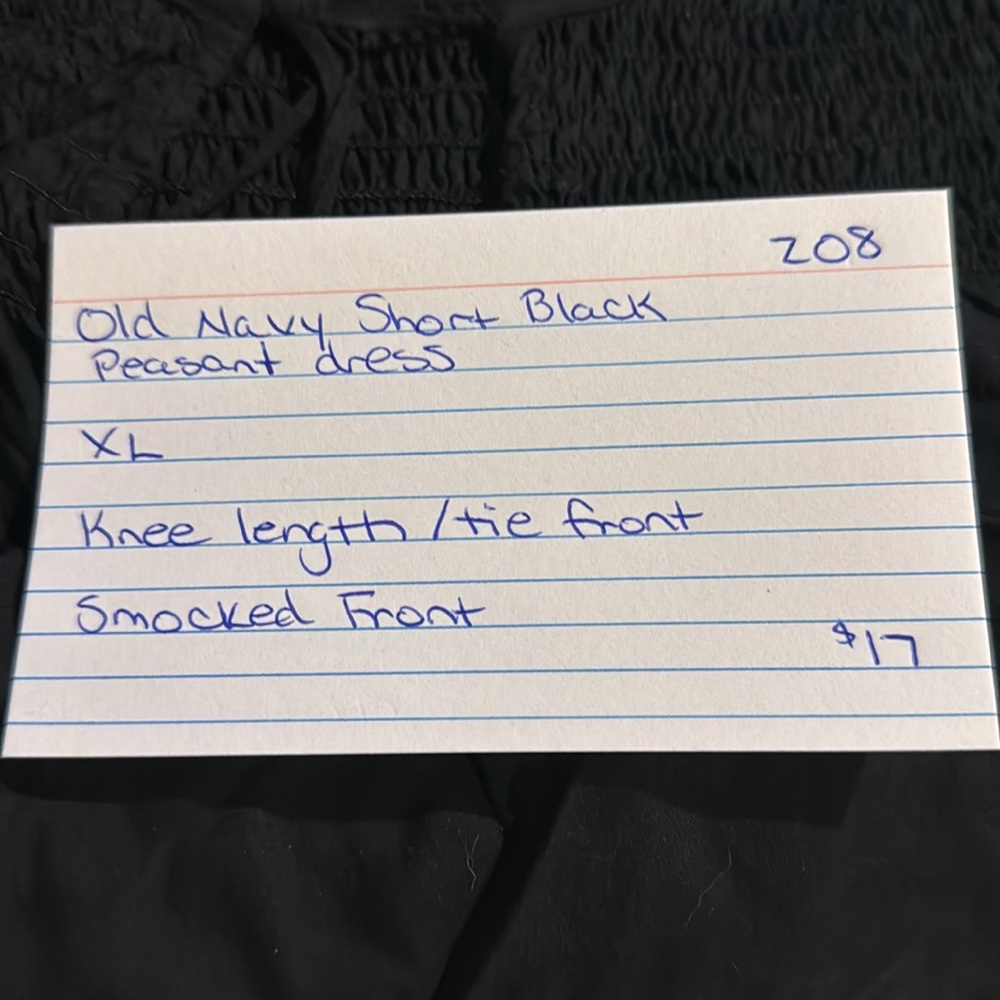 208
Old Navy Short Black
Peasant dress
XL
Knee length /tie front
Smocked Front
$17